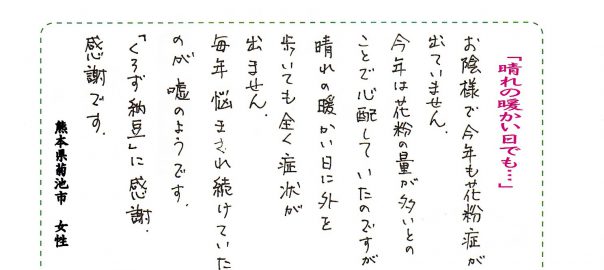 「晴れの暖かい日でも…」
お陰様で今年も花粉症が
出ていません。
今年は花粉の量が多いとの
ことで心配していたのですが
晴れの暖かい日に外を
歩いても全く症状が
出ません。
毎年悩まされ続けていた
のが嘘のようです。
「くろず納豆」に感謝、
感謝です。
熊本県菊池市 女性